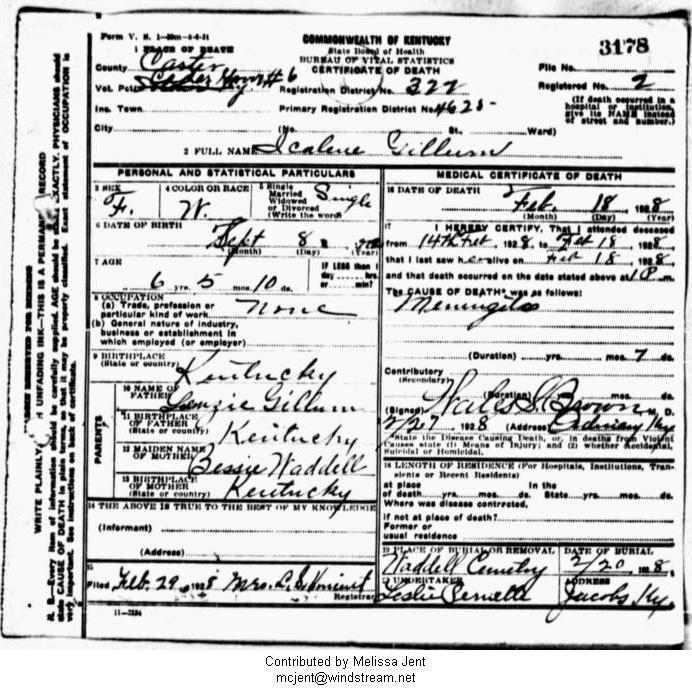 Form V. S. 1
COMMONWEALTH OF KENTUCKY
State Board of Health
BUREAU OF VITAL STATISTICS
CERTIFICATE OF DEATH
3178
File No.
Registered No. 2
(If death occurred in a hospital or institution, give its NAME instead of street and number.)
1 PLACE OF DEATH
County Carter
Vot. Pct. Hwy # 6
Registration District No. 322
Ins. Town
Primary Registration District No. 4625
City (No. St., Ward)
2 FULL NAME Icalene Gillum
PERSONAL AND STATISTICAL PARTICULARS
3 SEX F.
4 COLOR OR RACE W.
5 Single Married Widowed or Divorced (Write the word) Single
6 DATE OF BIRTH Sept 8
(Month) (Day) (Year)
7 AGE 6 yrs. 5 mos. 10 ds.
IF LESS than 1 day hrs. or min?
8 OCCUPATION
(a) Trade, profession or particular kind of work none
(b) General nature of industry, business or establishment in which employed (or employer)
9 BIRTHPLACE (State or country) Kentucky
PARENTS
10 NAME OF FATHER Gillum
11 BIRTHPLACE OF FATHER (State or country) Kentucky
12 MAIDEN NAME OF MOTHER Bessie Waddell
13 BIRTHPLACE OF MOTHER (State or country) Kentucky
14 THE ABOVE IS TRUE TO THE BEST OF MY KNOWLEDGE
(Informant)
(Address)
15
Filed Feb. 29 1928 Mrs.
Registrar
11-3184
MEDICAL CERTIFICATE OF DEATH
16 DATE OF DEATH Feb. 18 1928
(Month) (Day) (Year)
17 I HEREBY CERTIFY, That I attended deceased
from 14th Feb, 1928 to Feb 18, 1928
that I last saw her alive on Feb 18, 1928
and that death occurred on the date stated above at m.
The CAUSE OF DEATH* was as follows:
Meningitis
(Duration) yrs. mos. 7 ds.
Contributory (Secondary)
(Duration) yrs. mos. ds.
(Signed) Brown M. D.
2/27 1928 (Address) Ky
*State the Disease Causing Death, or, in deaths from Violent Causes state (1) Means of Injury; and (2) whether Accidental, Suicidal or Homicidal.
18 LENGTH OF RESIDENCE (For Hospitals, Institutions, Transients or Recent Residents)
at place of death yrs. mos. ds. In the State yrs. mos. ds.
Where was disease contrected,
if not at place of death?
Former or usual residence
19 PLACE OF BURIAL OR REMOVAL Waddell Cemetry
DATE OF BURIAL 2/20 1928
20 UNDERTAKER Leslie
ADDRESS Jacobs Ky.
WRITE PLAINLY, UNFADING INK—THIS IS A PERMANENT RECORD
N. B.—Every item of information should be carefully supplied. AGE should be EXACTLY. PHYSICIANS should state CAUSE OF DEATH in plain terms, so that it may be properly classified. Exact statement of OCCUPATION is very important. See instructions on back of certificate.
Contributed by Melissa Jent
mcjent@windstream.net